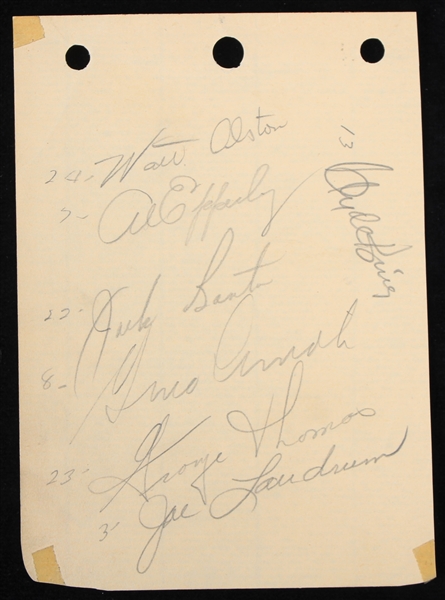 24- Walt Alston
7- Al Epperly
13 Clyde King
22- Jack Banta
8- Gino
23- George Thomas
3- Joe Landrum